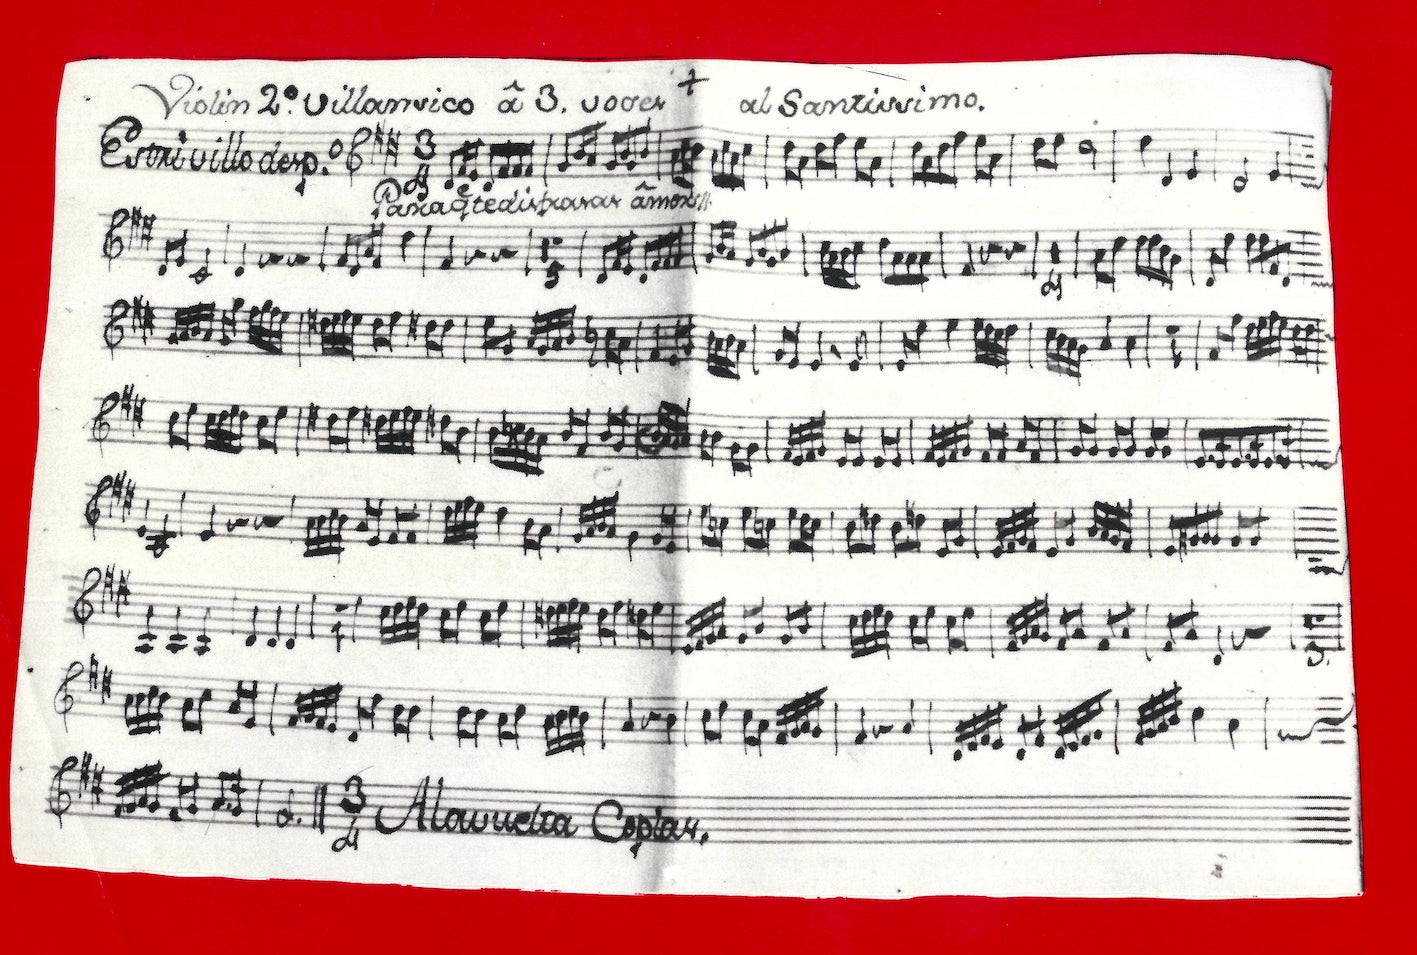 Violin 2º. Villansico â 3. voces al Santissimo.
Estrivillo desp.º 3 4
Para q̃ te disfrasas âmor
3 4 A la vuelta Coplas.